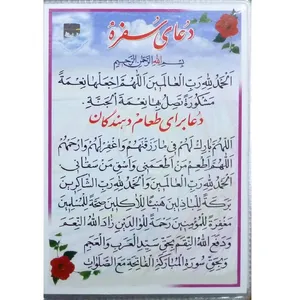 دعای سفره
بسم الله الرحمن الرحیم
اَلْحَمْدُ لِلّٰهِ رَبِّ الْعالَمینَ اَللّٰهُمَّ اجْعَلْها نِعْمَةً
مَشْکُورَةً تَصِلُ بِها نِعْمَةَ الْجَنَّةِ.
دعا برای طعام دهندگان
اَللّٰهُمَّ بارِکْ لَهُمْ فی ما رَزَقْتَهُمْ وَاغْفِرْ لَهُمْ وَارْحَمْهُمْ
اَللّٰهُمَّ اَطْعِمْ مَنْ اَطْعَمَنی وَاَسْقِ مَنْ سَقانی
اَلْحَمْدُ لِلّٰهِ رَبِّ الْعالَمینَ وَالْحَمْدُ لِلّٰهِ رَبِّ الشّاکِرینَ
بَرَکَةً لِلْباذِلینَ هَنیئاً لِلْآکِلینَ صِحَّةً لِلْمُسْلِمینَ
مَغْفِرَةً لِلْمُؤْمِنینَ رَحْمَةً لِلْوالِدَیْنِ زادَ اللّٰهُ النِّعَمَ
وَدَفَعَ اللّٰهُ النِّقَمَ بِحَقِّ سَیِّدِ الْعَرَبِ وَالْعَجَمِ
وَبِحَقِّ سُورَةِ الْمُبارَکَةِ الْفاتِحَةِ مَعَ الصَّلَواتِ